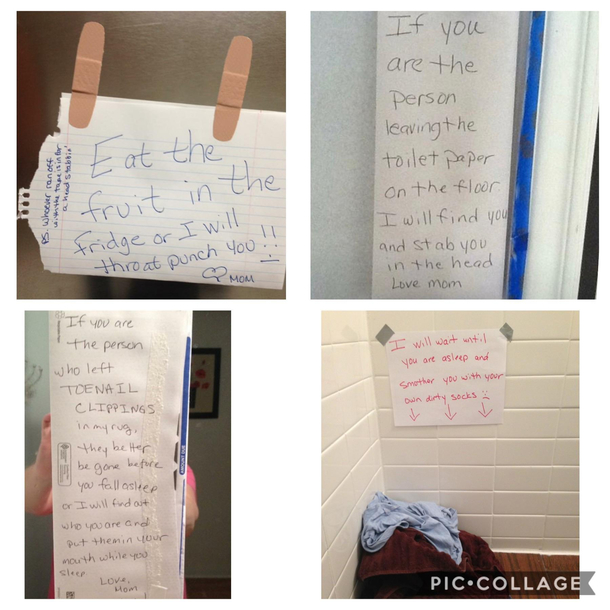 Eat the
fruit in the
fridge or I will
throat punch you!!
♡ MOM
PS. Whoever ran off
with the tape is in for
a head stabbin'
If you
are the
person
leaving the
toilet paper
on the floor
I will find you
and stab you
in the head
Love mom
If you are
the person
who left
TOENAIL
CLIPPINGS
in my rug,
they better
be gone before
you fall asleep
or I will find out
who you are and
put them in your
mouth while you
sleep
Love,
Mom
I will wait until
you are asleep and
smother you with your
own dirty socks :)
PIC•COLLAGE